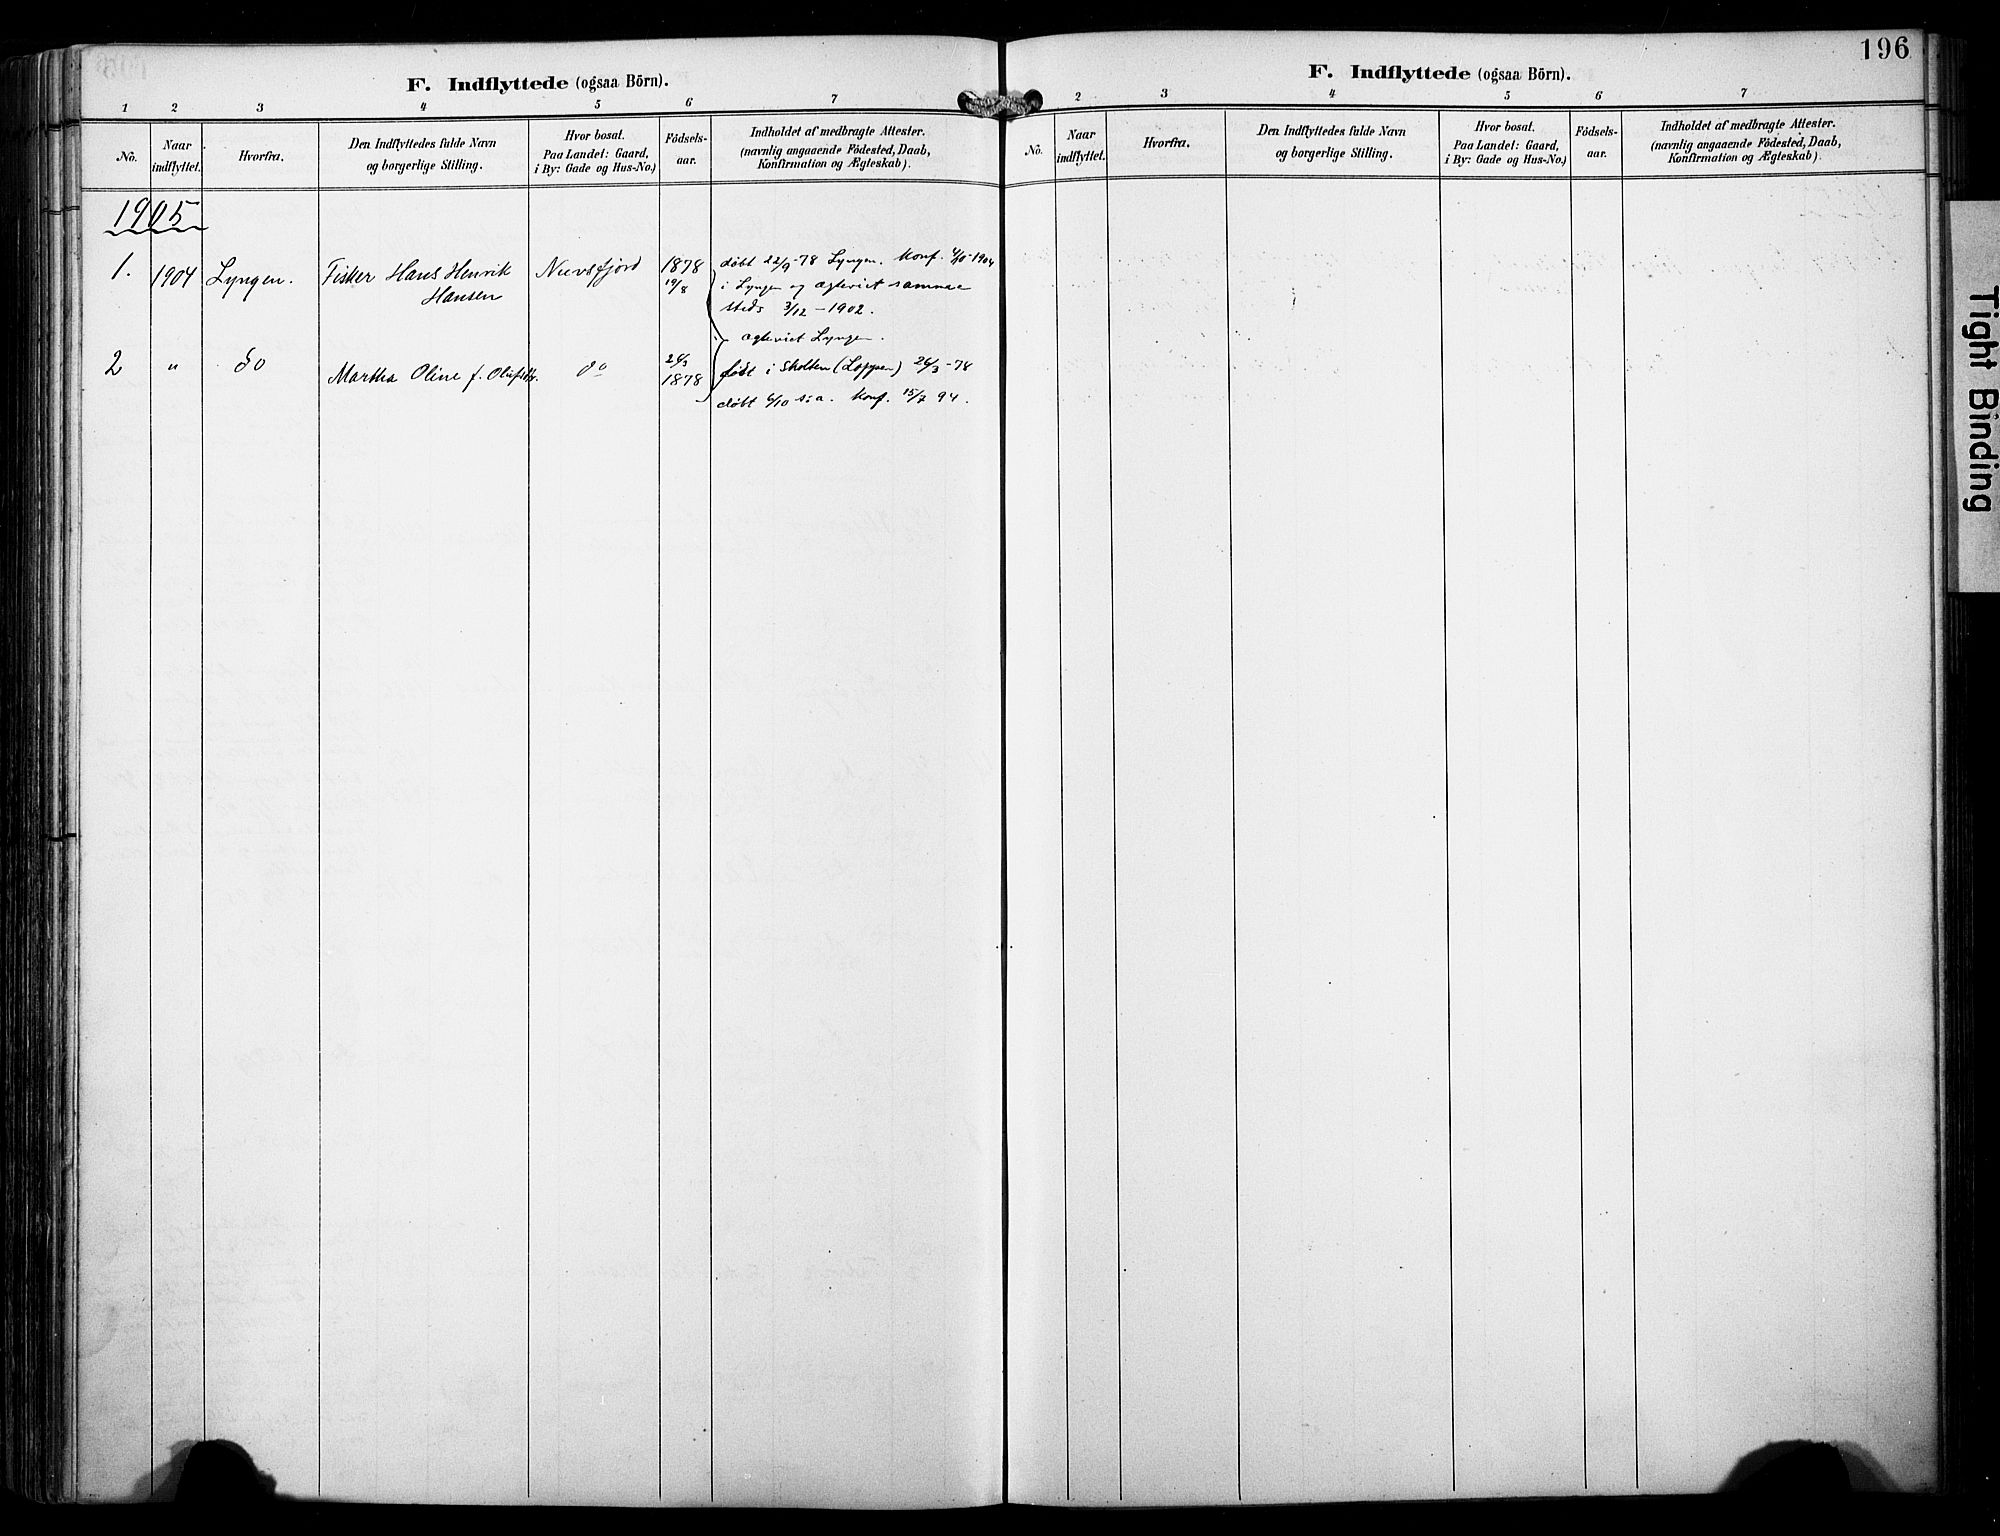 196
F. Indflyttede (ogsaa Börn).
1 2 3 4 5 6 7
No.
Naar indflyttet.
Hvorfra.
Den Indflyttedes fulde Navn
og borgerlige Stilling.
Hvor bosat.
Paa Landet: Gaard,
i By: Gade og Hus-No.)
Födsels-
aar.
Indholdet af medbragte Attester.
(navnlig angaaende Födested, Daab,
Konfirmation og Ægteskab).
1905
1. 1904 Lyngen. Fisker Hans Henrik Nuvsfjord 1878
Hansen 19/8
døbt 22/9-78 Lyngen. Konf. 4/10-1904
i Lyngen og ægteviet samme
steds 3/12-1902.
ægteviet Lyngen.
2 " do Martha Oline f. do 26/3
1878
født i Skolten (Loppen) 26/3-78
døbt 6/10 s:a. Konf. 15/7 94.
F. Indflyttede (ogsaa Börn).
2 3 4 5 6 7
No.
Naar
indflyttet.
Hvorfra.
Den Indflyttedes fulde Navn
og borgerlige Stilling.
Hvor bosat.
Paa Landet: Gaard,
i By: Gade og Hus-No.)
Födsels-
aar.
Indholdet af medbragte Attester.
(navnlig angaaende Födested, Daab,
Konfirmation og Ægteskab).
Tight Binding